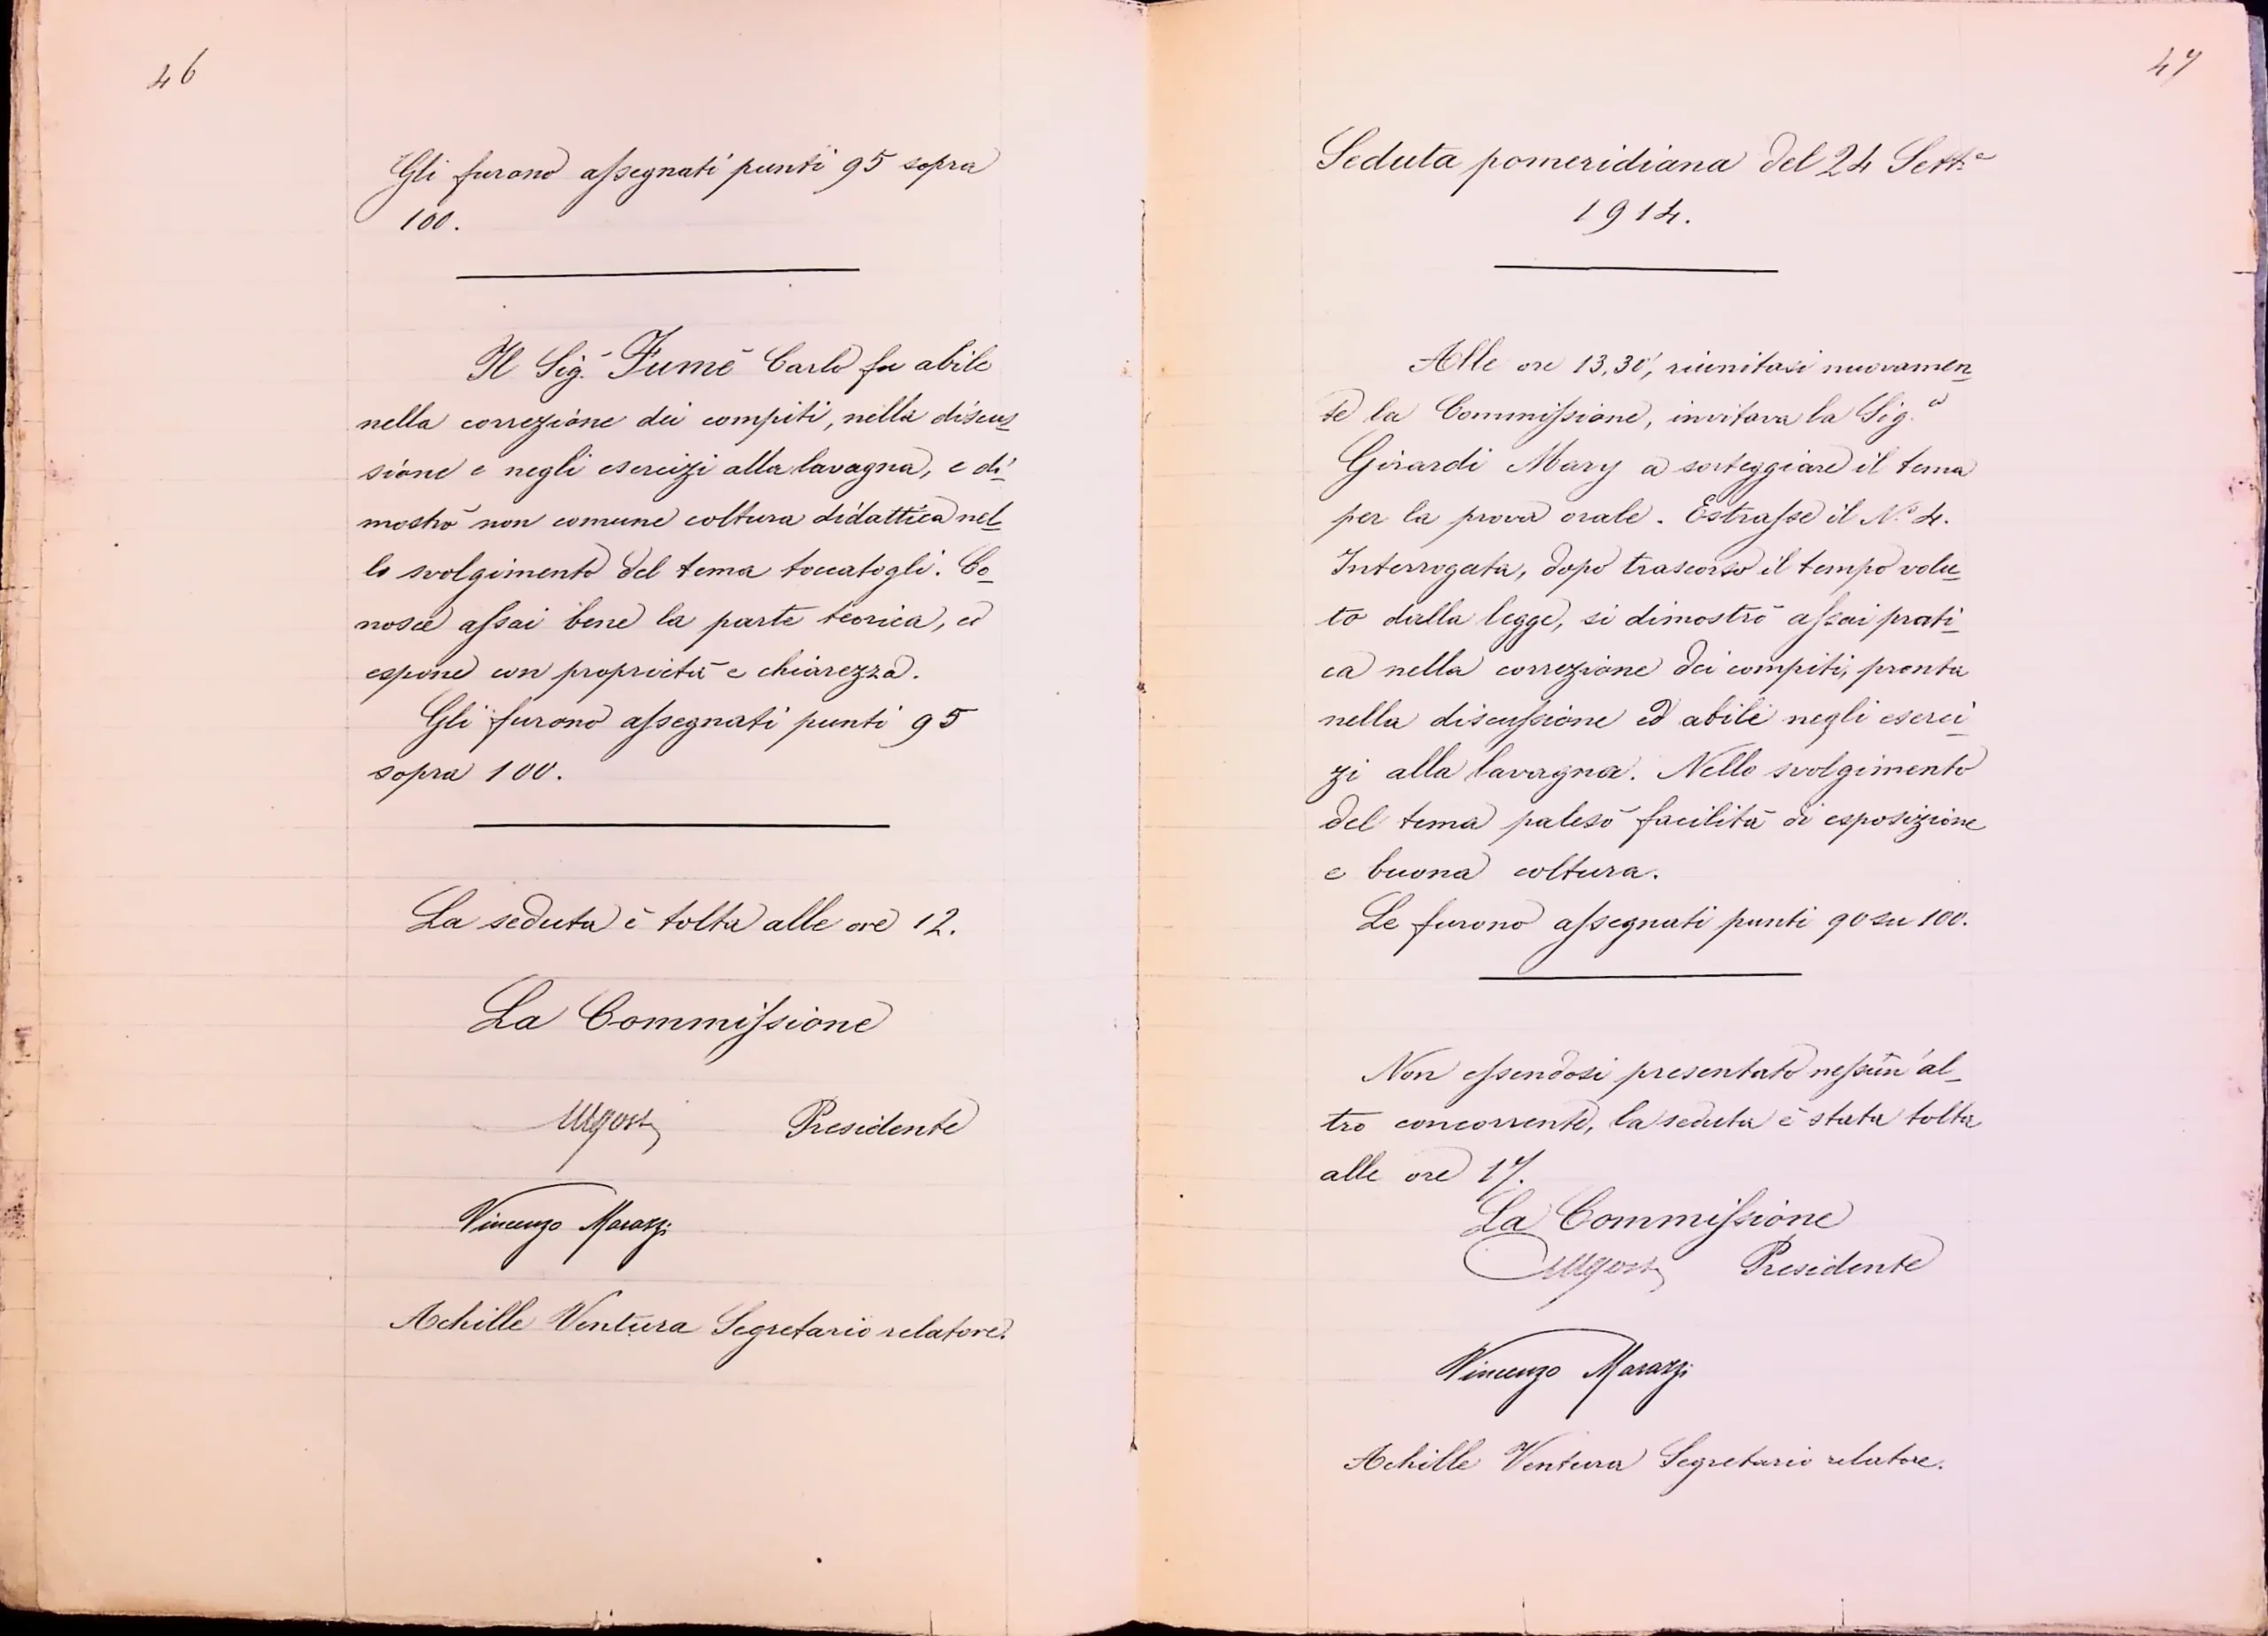 46
Gli furono assegnati punti 95 sopra
100.
Il Sig.r Fumè Carlo fu abile
nella correzione dei compiti, nella discus-
sione e negli esercizi alla lavagna, e di-
mostrò non comune coltura didattica nel-
lo svolgimento del tema toccatogli. Co-
nosce assai bene la parte teorica, ed
espone con proprietà e chiarezza.
Gli furono assegnati punti 95
sopra 100.
La seduta è tolta alle ore 12.
La Commissione
Presidente
Vincenzo Marazzi
Achille Ventura Segretario relatore.
47
Seduta pomeridiana del 24 Sett.e
1914.
Alle ore 13,30', riunitasi nuovamen-
te la Commissione, invitava la Sig.a
Girardi Mary a sorteggiare il tema
per la prova orale. Estrasse il N.o 4.
Interrogata, dopo trascorso il tempo volu-
to dalla legge, si dimostrò assai prati-
ca nella correzione dei compiti, pronta
nella discussione ed abile negli eserci-
zi alla lavagna. Nello svolgimento
del tema palesò facilità di esposizione
e buona coltura.
Le furono assegnati punti 90 su 100.
Non essendosi presentato nessun'al-
tro concorrente, la seduta è stata tolta
alle ore 17.
La Commissione
Presidente
Vincenzo Marazzi
Achille Ventura Segretario relatore.